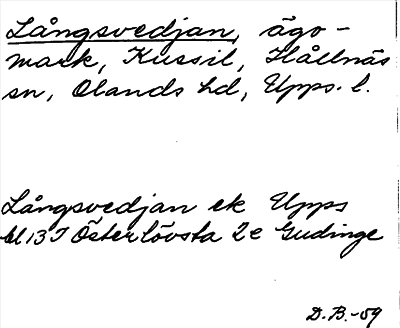 Långsvedjan, ägo-
mark, Kussil, Hållnäs
sn, Olands hd, Upps. l.
Långsvedjan ek Upps
bl 13 I Österlövsta 2e Gudinge
D.B.-59